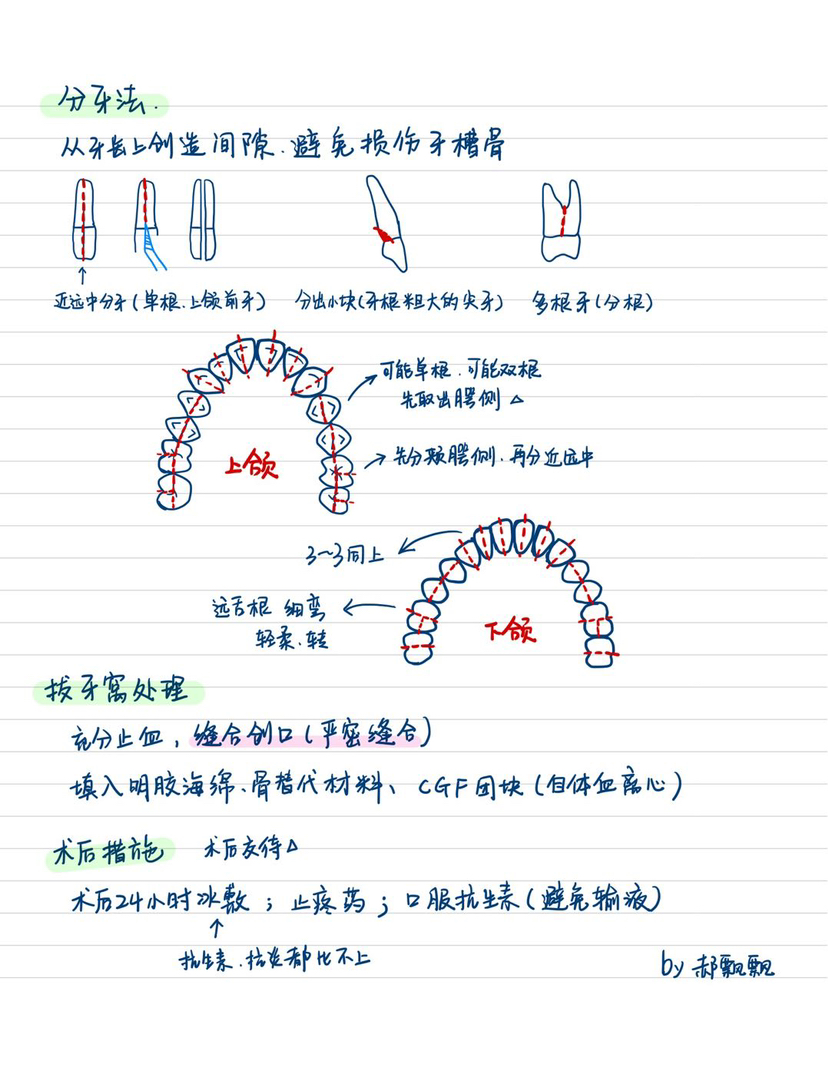 分牙法.
从牙长上创造间隙.避免损伤牙槽骨
近远中分牙(单根.上颌前牙)
分出小块(牙根粗大的尖牙)
多根牙(分根)
可能单根.可能双根
先取出腭侧 △
上颌
先分颊腭侧.再分近远中
3~3同上
远舌根 细弯
轻柔.转
下颌
拔牙窝处理
充分止血,缝合创口(严密缝合)
填入明胶海绵、骨替代材料、CGF团块(自体血离心)
术后措施 术后交待△
术后24小时冰敷;止疼药;口服抗生素(避免输液)
抗生素.抗炎都比不上
by 郝飘飘